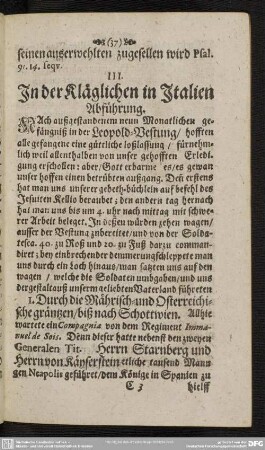 (37)
seinen auserwehlten zugesellen wird Psal.
91. 14. seqv.
III.
In der Kläglichen in Italien
Abführung.
NAch außgestandenem neun Monatlichen ge-
fängniß in der Leopold-Vestung/ hofften
alle gefangene eine güttliche loßlassung/ fürnehm-
lich weil allenthalben von unser gehofften Erledi-
gung erschollen: aber/ Gott erbarme es/ es gewan
unser hoffen einen betrübten außgang. Den erstens
hat man uns unserer gebeth-büchlein auf befehl des
Jesuiten Kellio beraubet; den andern tag hernach
hat man uns bis um 4. uhr nach mittag mit schwe-
rer Arbeit beleget. In deßen würden zehen wagen/
ausser der Vestung zubereitet/ und von der Solda-
tesca. 40. zu Roß und 20. zu Fuß darzu comman-
diret; bey einbrechender demmerung schleppete man
uns durch ein loch hinaus/ man satzten uns auf den
wagen/ welche die Soldaten umbgaben/ und uns
dergestalt auß unserm geliebten Vaterland führeten
1. Durch die Mährisch- und Osterreichi-
sche gräntzen/ biß nach Schottwien. Allhie
wartete ein Compagnia von dem Regiment Imma-
nuel de Sois. Denn dieser hatte nebenst den zweyen
Generalen Tit. Herrn Starnberg und
Herrn von Käyserstein etliche tausend Mann
gen Neapolis geführet/ dem Könige in Spanien zu
C 3 hielff